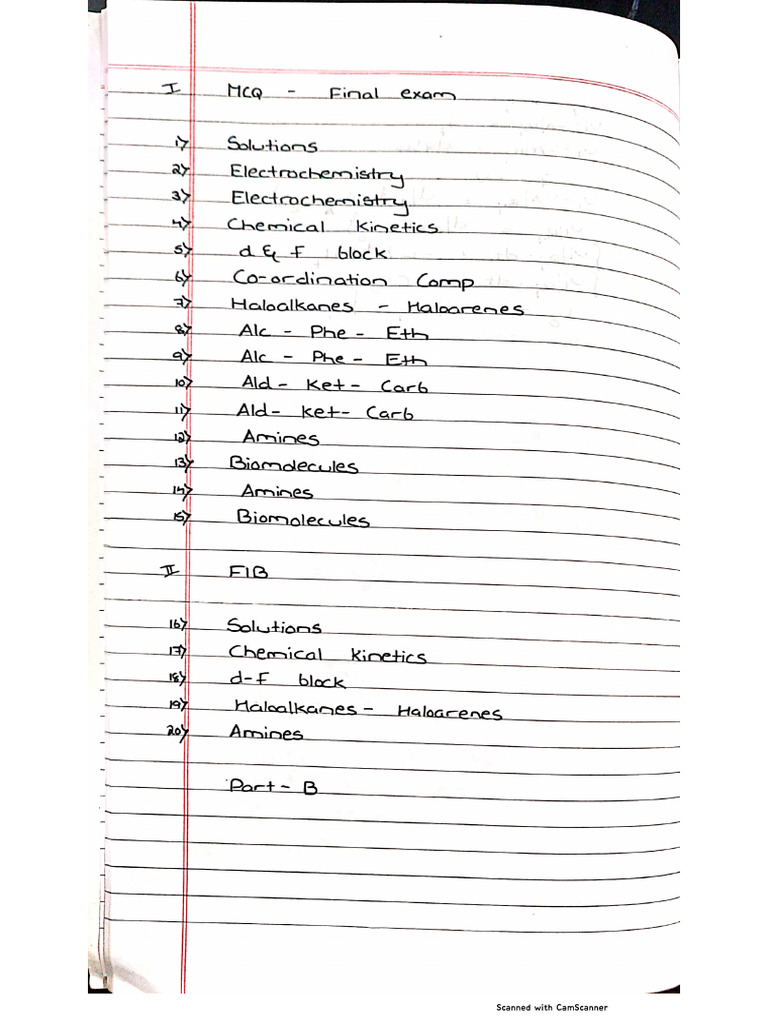 I MCQ - Final exam
1) Solutions
2) Electrochemistry
3) Electrochemistry
4) Chemical Kinetics
5) d & f block
6) Co-ordination Comp
7) Haloalkanes - Haloarenes
8) Alc - Phe - Eth
9) Alc - Phe - Eth
10) Ald - Ket - Carb
11) Ald - Ket - Carb
12) Amines
13) Biomolecules
14) Amines
15) Biomolecules
II FIB
16) Solutions
17) Chemical Kinetics
18) d-f block
19) Haloalkanes - Haloarenes
20) Amines
Part - B
Scanned with CamScanner